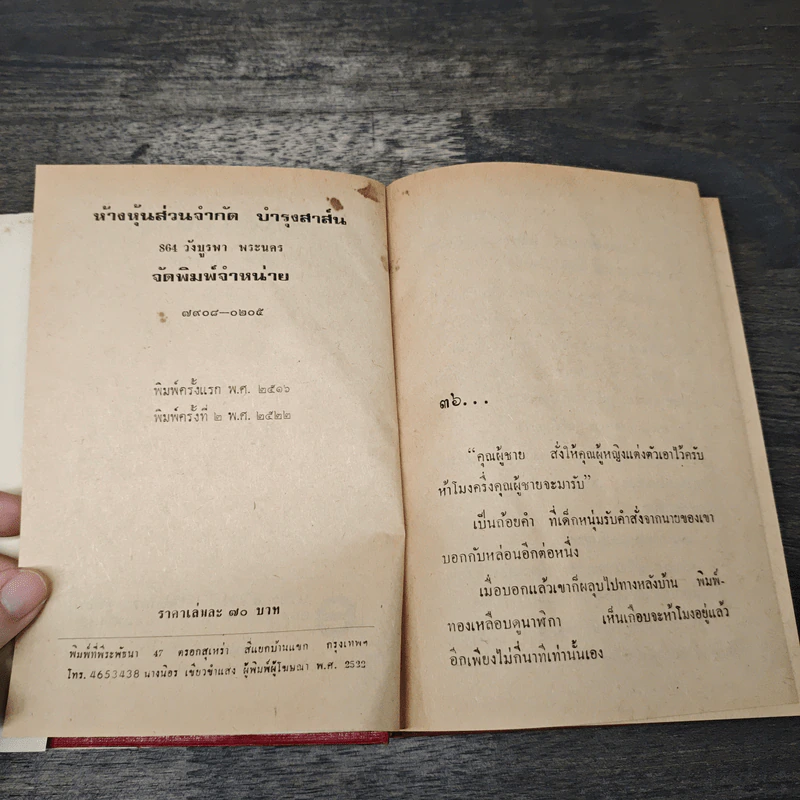 ห้างหุ้นส่วนจำกัด บำรุงสาส์น
864 วังบูรพา พระนคร
จัดพิมพ์จำหน่าย
๗๙๐๘—๐๒๐๕
พิมพ์ครั้งแรก พ.ศ. ๒๕๑๖
พิมพ์ครั้งที่ ๒ พ.ศ. ๒๕๒๒
ราคาเล่มละ ๗๐ บาท
พิมพ์ที่พีระพัธนา 47 ตรอกสุเหร่า สี่แยกบ้านแขก กรุงเทพฯ
โทร. 4653438 นางนิอร เขียวขำแสง ผู้พิมพ์ผู้โฆษณา พ.ศ. 2522
๓๖...
“คุณผู้ชาย สั่งให้คุณผู้หญิงแต่งตัวเอาไว้ครับ
ห้าโมงครึ่งคุณผู้ชายจะมารับ”
เป็นถ้อยคำ ที่เด็กหนุ่มรับคำสั่งจากนายของเขา
บอกกับหล่อนอีกต่อหนึ่ง
เมื่อบอกแล้วเขาก็ผลุบไปทางหลังบ้าน พิมพ์-
ทองเหลือบดูนาฬิกา เห็นเกือบจะห้าโมงอยู่แล้ว
อีกเพียงไม่กี่นาทีเท่านั้นเอง